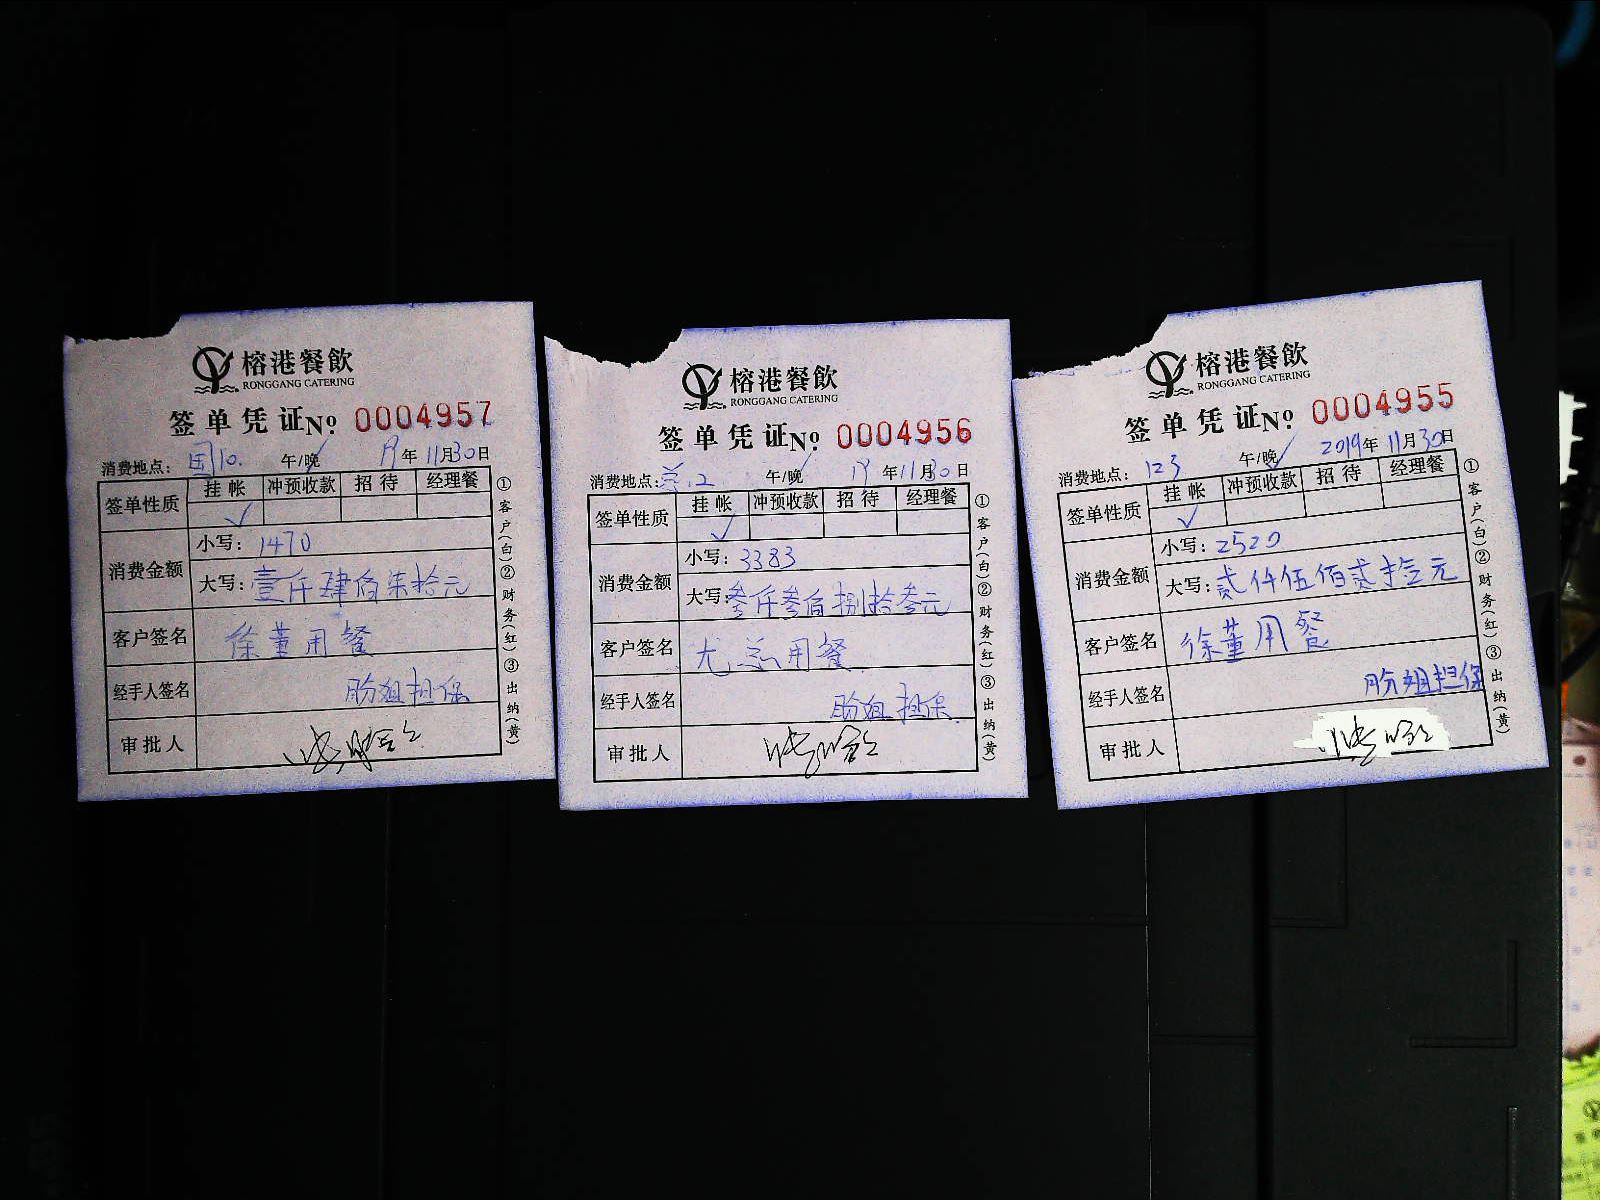 榕港餐飲
RONGGANG CATERING
签单凭证 No: 0004957
消费地点: 国10. 午/晚 19年11月30日
签单性质 挂帐 冲预收款 招待 经理餐
✓
消费金额 小写: 1470
大写: 壹仟肆佰柒拾元
客户签名 徐董用餐
经手人签名 盼姐担保
审批人
①客户(白)②财务(红)③出纳(黄)
榕港餐飲
RONGGANG CATERING
签单凭证 No: 0004956
消费地点: 兰.2 午/晚 19年11月30日
签单性质 挂帐 冲预收款 招待 经理餐
✓
消费金额 小写: 3383
大写: 叁仟叁佰捌拾叁元
客户签名 尤总用餐
经手人签名 盼姐担保
审批人
①客户(白)②财务(红)③出纳(黄)
榕港餐飲
RONGGANG CATERING
签单凭证 No: 0004955
消费地点: 123 午/晚 2019年11月30日
签单性质 挂帐 冲预收款 招待 经理餐
✓
消费金额 小写: 2520
大写: 贰仟伍佰贰拾元
客户签名 徐董用餐
经手人签名 盼姐担保
审批人
①客户(白)②财务(红)③出纳(黄)